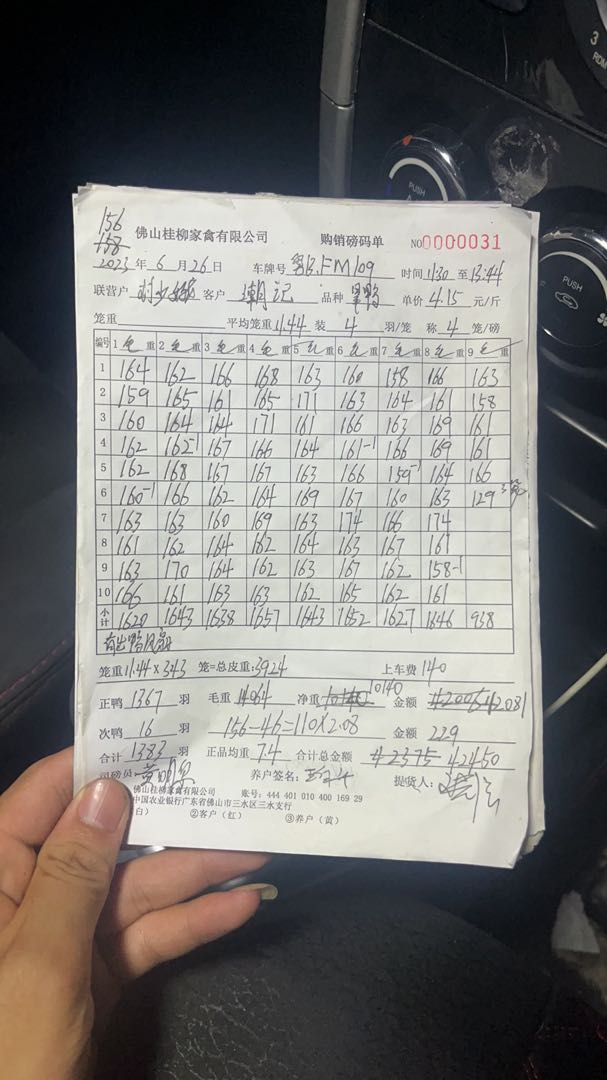 156
158
佛山桂柳家禽有限公司 购销磅码单 NO0000031
2023 年 6 月 26 日 车牌号 FM109 时间 11:30 至 13:44
联营户 客户 潮记 品种 单价 4.15 元/斤
笼重 平均笼重 11.44 装 4 羽/笼 称 4 笼/磅
编号 1 毛重 2 毛重 3 毛重 4 毛重 5 毛重 6 毛重 7 毛重 8 毛重 9 毛重
1 164 162 166 168 163 160 158 166 163
2 159 165 161 165 171 163 164 161 158
3 160 164 164 171 161 166 163 169 161
4 162 162-1 167 166 164 161-1 166 169 161
5 162 168 167 167 163 166 159-1 164 166
6 160-1 166 162 164 169 167 160 163 129 3笼
7 163 163 160 169 163 174 166 174
8 161 162 164 162 164 163 167 161
9 163 170 164 162 163 167 162 158-1
10 166 161 163 163 162 165 162 161
小计 1620 1643 1638 1657 1643 1652 1627 1646 938
笼重 11.44 x 343 笼=总皮重: 3924 上车费 140
正鸭 1367 羽 毛重 14064 净重 10140 金额 42081
次鸭 16 羽 156-46=110x2.08 金额 229
合计 1383 羽 正品均重 7.4 合计总金额 42375 42450
司磅员 养户签名: 提货人:
佛山桂柳家禽有限公司 账号: 444 401 010 400 169 29
中国农业银行广东省佛山市三水区三水支行
白) ②客户（红） ③养户（黄）
PUSH
PUSH
3
RDM